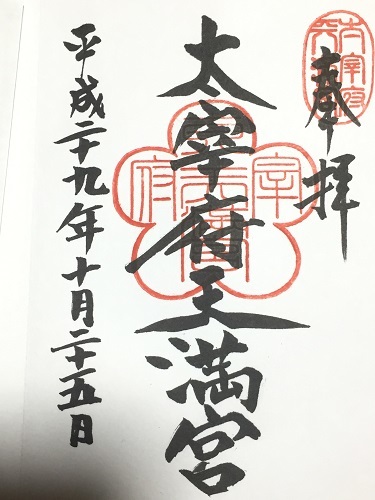 奉拝
太宰府天満宮
平成二十九年十月二十五日